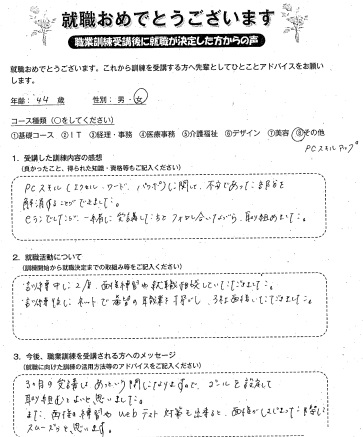 就職おめでとうございます
職業訓練受講後に就職が決定した方からの声
就職おめでとうございます。これから訓練を受講する方へ先輩としてひとことアドバイスをお願いします。
年齢： 44 歳 性別： 男・女
コース種類（○をしてください）
①基礎コース ②IT ③経理・事務 ④医療事務 ⑤介護福祉 ⑥デザイン ⑦美容 ⑧その他
PCスキルアップ
1. 受講した訓練内容の感想
（良かったこと、得られた知識・資格等もご記入ください）
PCスキル（エクセル・ワード、パワポ）に関して、不安であった部分を
解消することができました。
一緒に受講している方とフォローし合いながら、取り組めました。
2. 就職活動について
（訓練開始から就職決定までの取組み等をご記入ください）
訓練中に2度、面接練習や就職相談していただきました。
訓練後にネットで希望の就業先を探し、3社面接していただきました。
3. 今後、職業訓練を受講される方へのメッセージ
（就職に向けた訓練の活用方法等のアドバイスをご記入ください）
3ヶ月の受講も、あっという間になりますので、ゴールを設定して
取り組むとよいと思いました。
また、面接の練習やwebテスト対策も出来ると、面接が
スムーズかと思います。